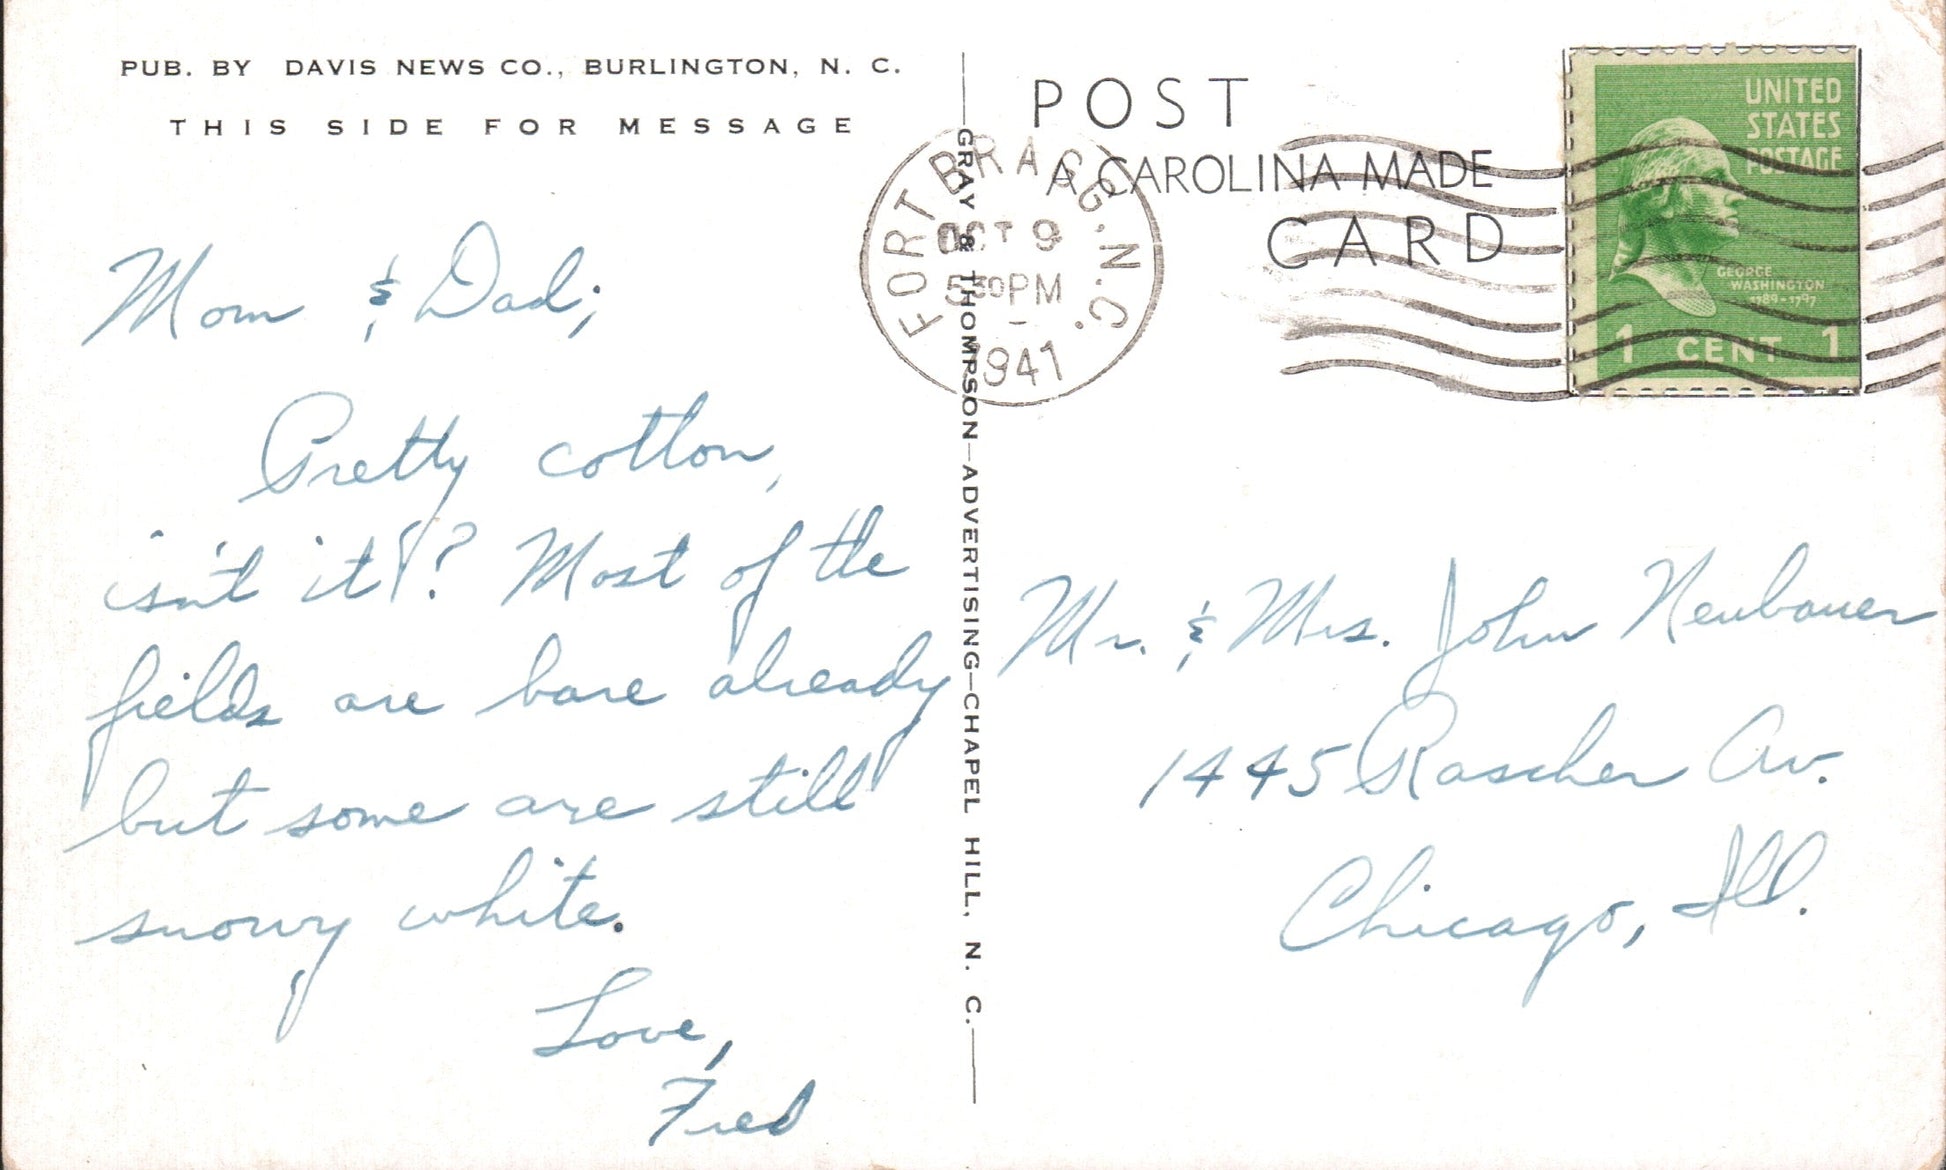 PUB. BY DAVIS NEWS CO., BURLINGTON, N. C.
THIS SIDE FOR MESSAGE
Mom & Dad;
Pretty cotton,
isn't it? Most of the
fields are bare already
but some are still
snowy white.
Love,
Fred
GRAY & THOMPSON—ADVERTISING—CHAPEL HILL, N. C.
POST
A CAROLINA MADE
CARD
FORT BRAGG, N.C.
OCT 9
530PM
1941
UNITED
STATES
POSTAGE
GEORGE
WASHINGTON
1789-1797
1 CENT 1
Mr. & Mrs. John Neubauer
1445 Rascher Av.
Chicago, Ill.